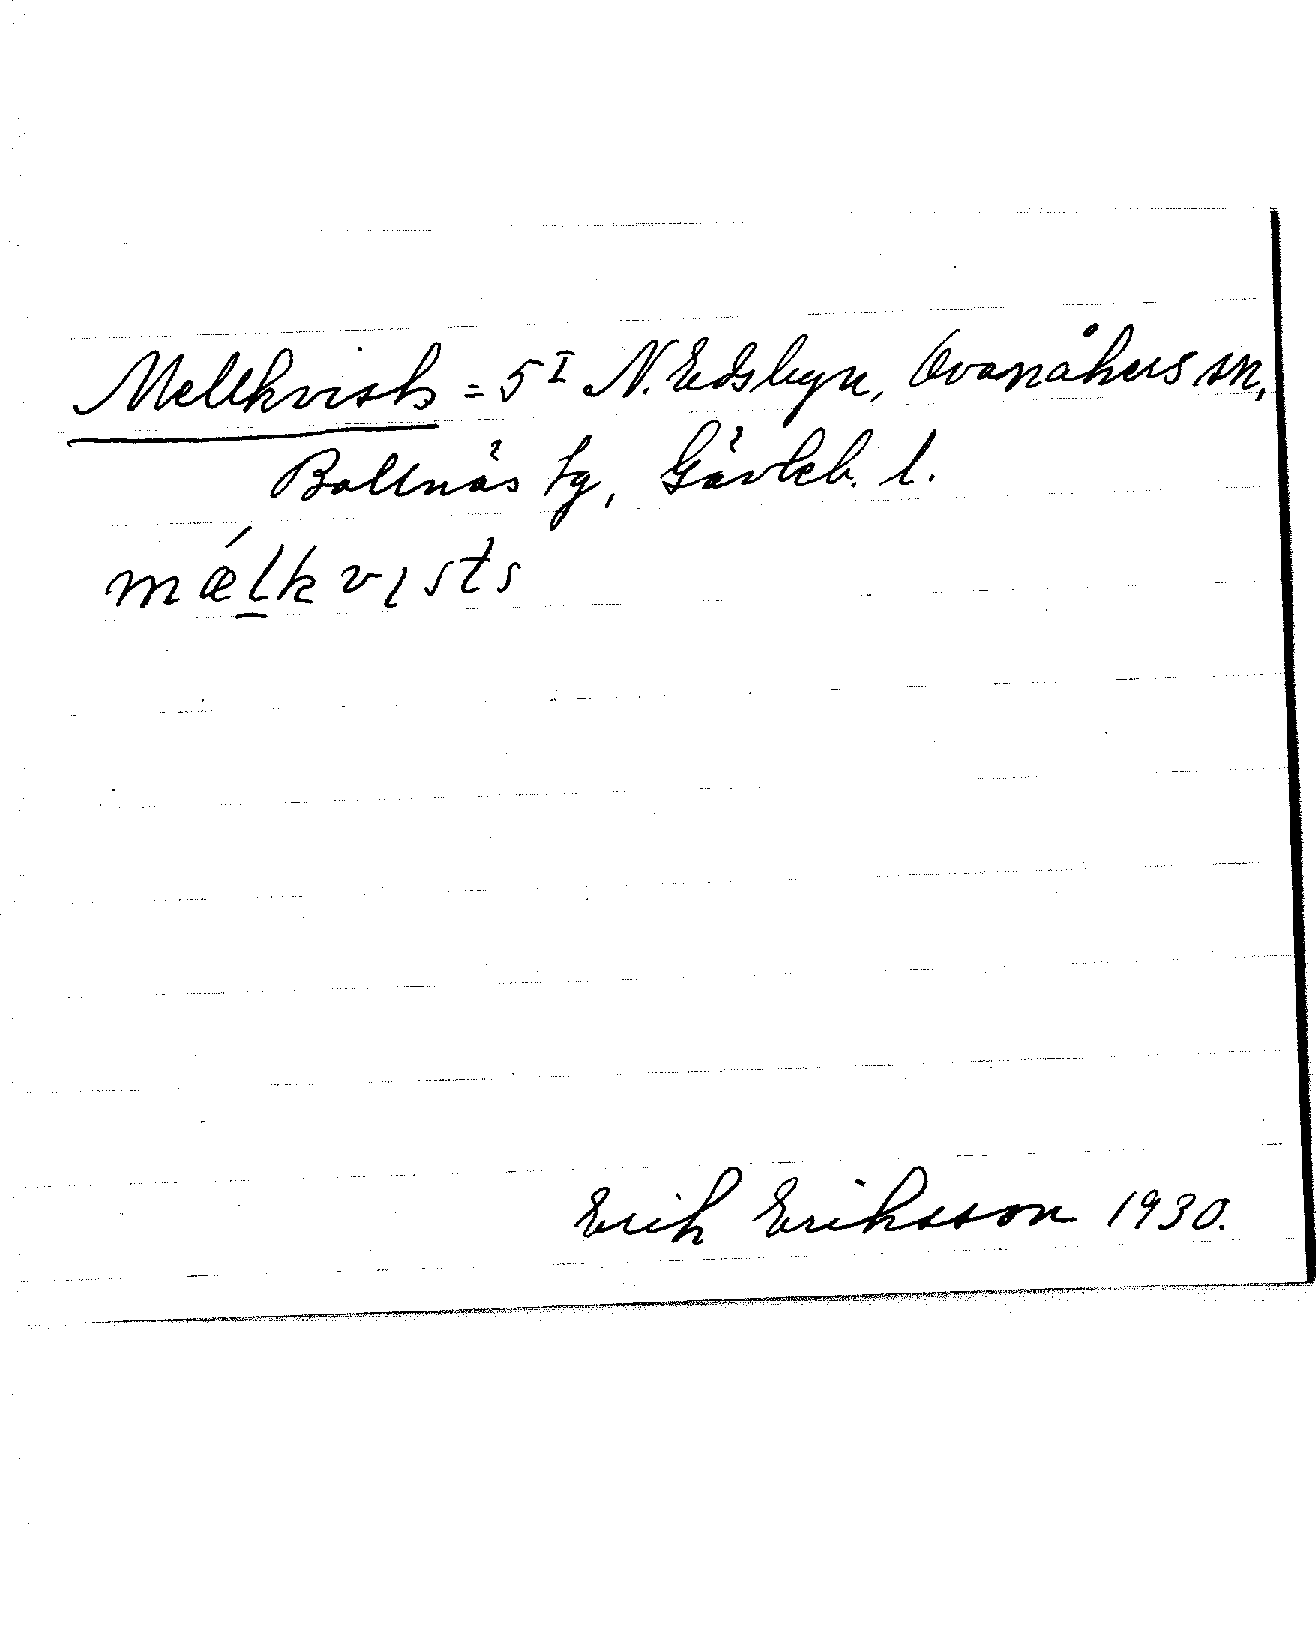 Mellkvists = 5 I N. Edsbyn, Ovanåkers sn,
Bollnäs tg, Gävleb. l.
mǽl̲kvısts
Erik Eriksson 1930.